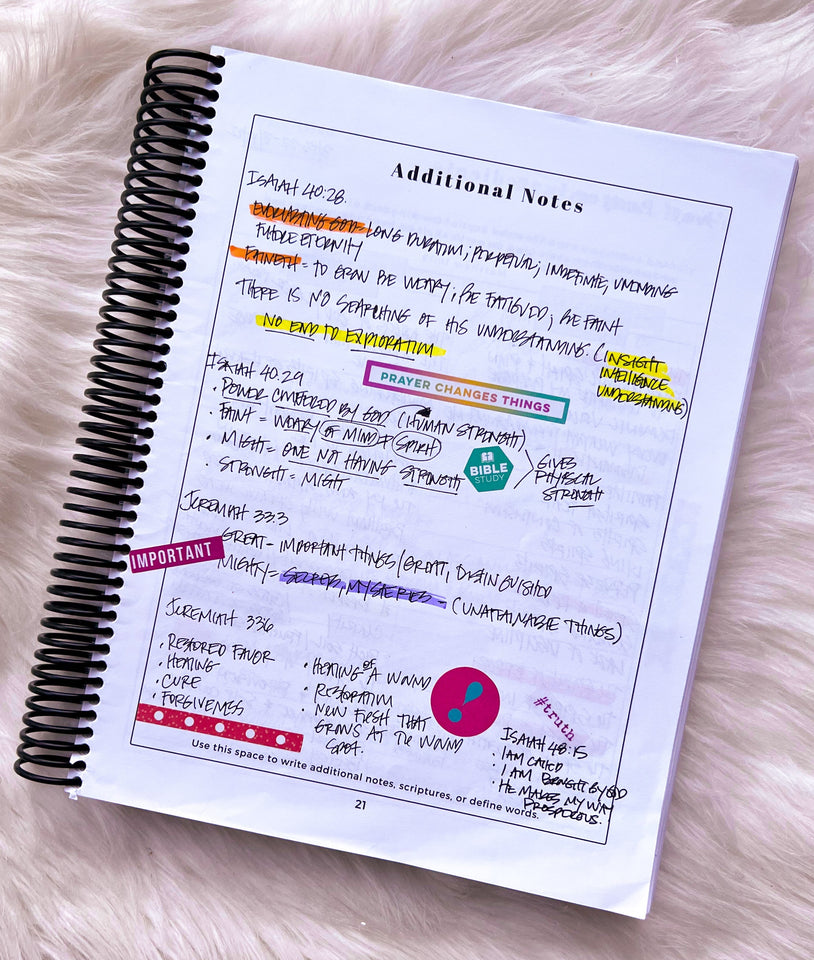 Additional Notes
ISAIAH 40:28.
EVERLASTING GOD = LONG DURATION; PERPETUAL; INDEFINITE, UNENDING
FUTURE ETERNITY
FAINETH = TO GROW BE WEARY; BE FATIGUED; BE FAINT
THERE IS NO SEARCHING OF HIS UNDERSTANDING. (INSIGHT
INTELLIGENCE
UNDERSTANDING)
NO END TO EXPLORATION
PRAYER CHANGES THINGS
ISAIAH 40:29
• POWER OFFERED BY GOD (HUMAN STRENGTH)
• FAINT = WEARY OF MIND & SPIRIT
• MIGHT = ONE NOT HAVING STRENGTH
• STRENGTH = MIGHT
BIBLE
STUDY
GIVES
PHYSICAL
STRENGTH
JEREMIAH 33:3
IMPORTANT
GREAT - IMPORTANT THINGS/GREAT, DISTINGUISHED
MIGHTY = SECRETS, MYSTERIES - (UNATTAINABLE THINGS)
JEREMIAH 33:6
• RESTORED FAVOR
• HEALING
• CURE
• FORGIVENESS
• HEALING OF A WOUND
• RESTORATION
• NEW FLESH THAT
GROWS AT THE WOUND
SPOT.
#truth
ISAIAH 48:15
• I AM CALLED
I AM BROUGHT BY GOD
• HE MAKES MY WAY
PROSPEROUS.
Use this space to write additional notes, scriptures, or define words.
21